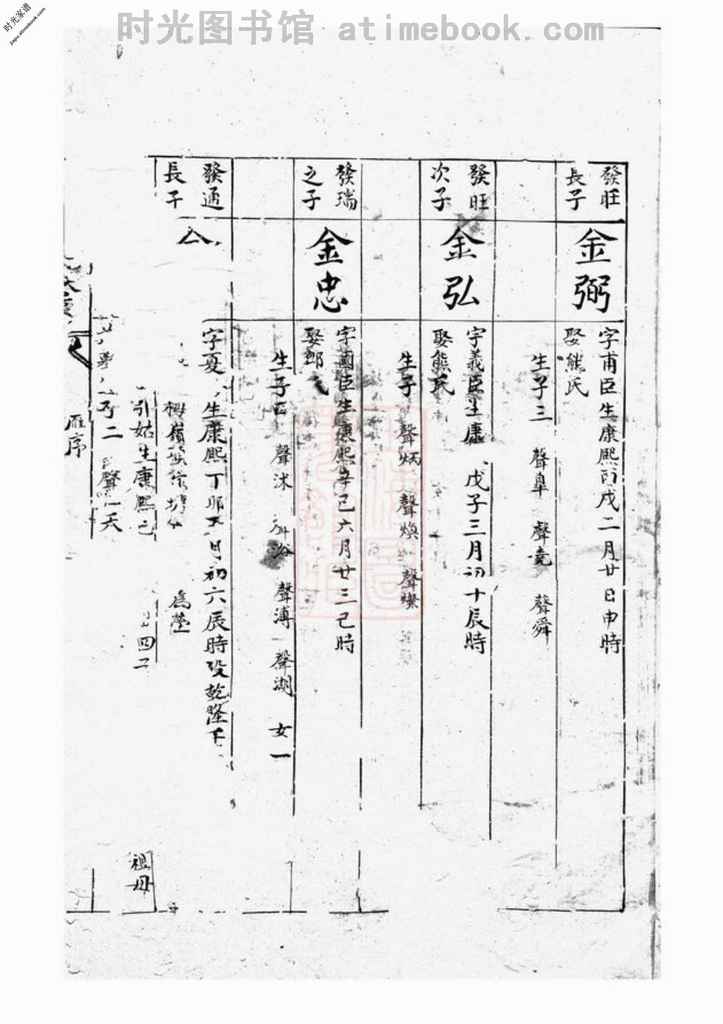 时光图书馆 atimebook.com
时光家谱
jiapu.atimebook.com
發旺
長子
金弼
字甫臣生康熙丙戌二月廿日申時
娶熊氏
生子三 聲臯 聲堯 聲舜
發旺
次子
金弘
字義臣生康 戊子三月初十辰時
娶熊氏
生子 聲炳 聲煥 聲燦
發瑞
之子
金忠
字國臣生康熙辛巳六月廿三巳時
娶郎氏
生子 聲沐 聲溥 聲湖 女一
發通
長子
字夏 生康熙丁卯 月初六辰時歿乾隆
為塋
引姑生康熙
祖母
二 聲 天
雁序